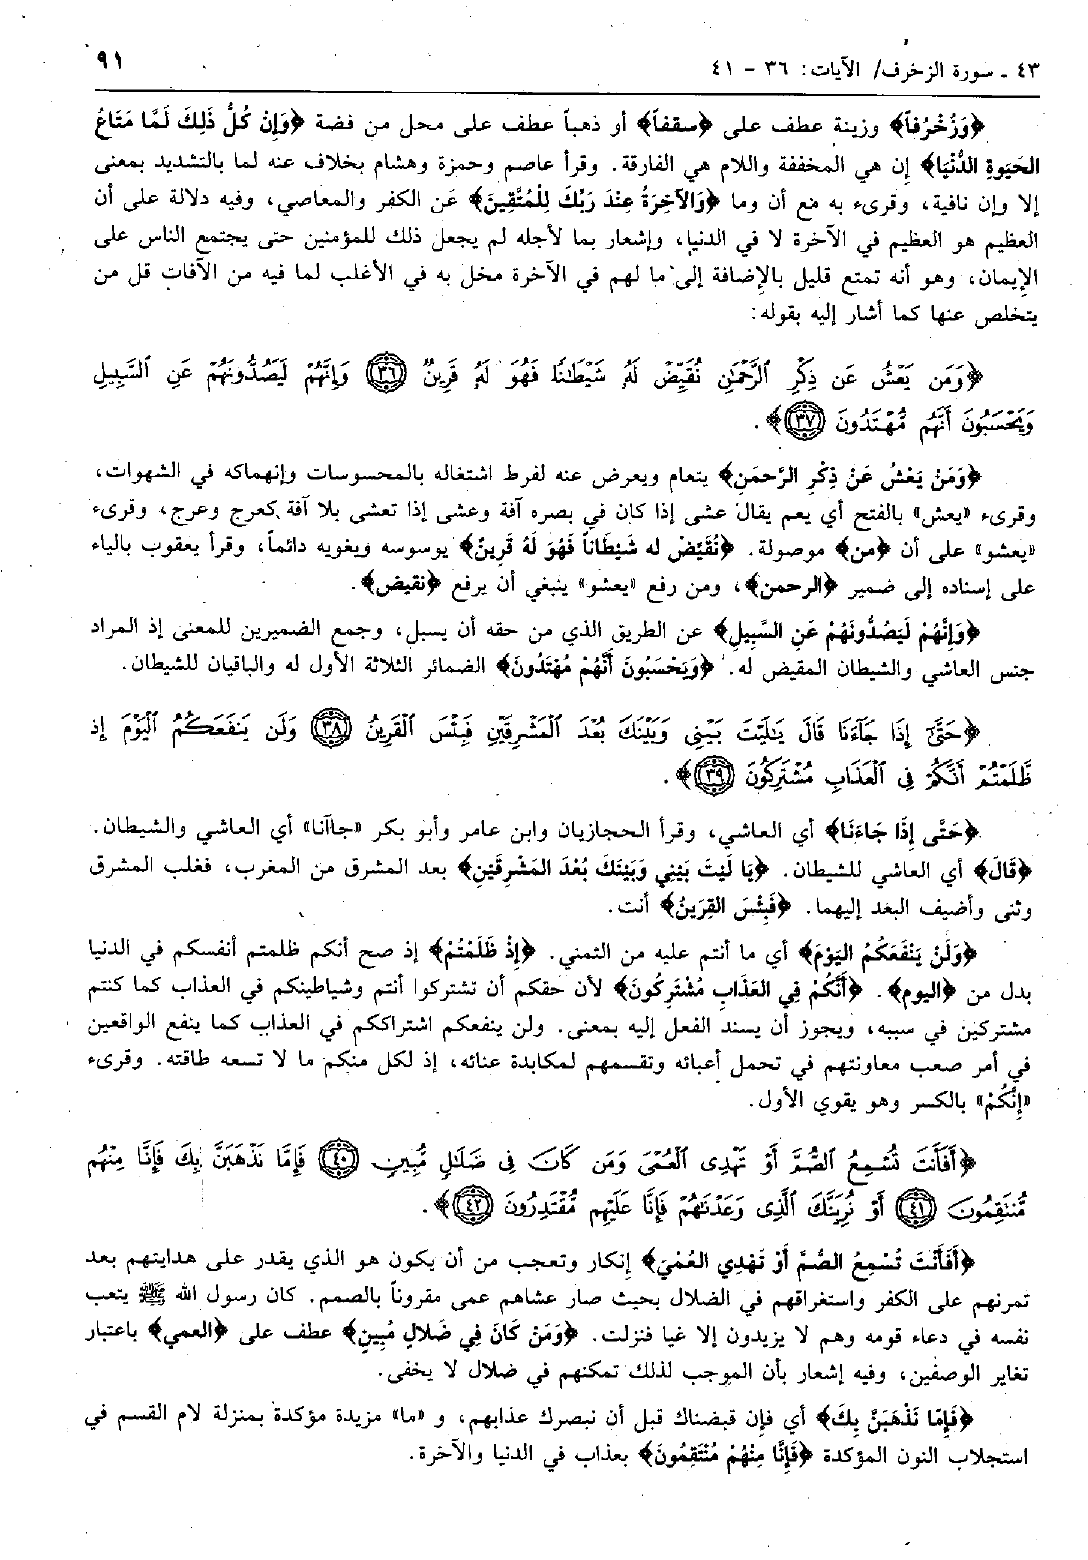 ٤٣ ـ سورة الزخرف/ الآيات: ٣٦ - ٤١
٩١
﴿وَزُخْرُفاً﴾ وزينة عطف على ﴿سقفاً﴾ أو ذهباً عطف على محل من فضة ﴿وَإِن كُلُّ ذَلِكَ لَمَّا مَتَاعُ
الحَيَوةِ الدُّنْيَا﴾ إن هي المخففة واللام هي الفارقة. وقرأ عاصم وحمزة وهشام بخلاف عنه لما بالتشديد بمعنى
إلا وإن نافية، وقرىء به مع أن وما ﴿وَالآخِرَةُ عِنْدَ رَبِّكَ لِلْمُتَّقِينَ﴾ عن الكفر والمعاصي، وفيه دلالة على أن
العظيم هو العظيم في الآخرة لا في الدنيا، وإشعار بما لأجله لم يجعل ذلك للمؤمنين حتى يجتمع الناس على
الإيمان، وهو أنه تمتع قليل بالإضافة إلى ما لهم في الآخرة مخل به في الأغلب لما فيه من الآفات قل من
يتخلص عنها كما أشار إليه بقوله:
﴿وَمَن يَعْشُ عَن ذِكْرِ ٱلرَّحْمَٰنِ نُقَيِّضْ لَهُۥ شَيْطَٰنًا فَهُوَ لَهُۥ قَرِينٌ ﴿٣٦﴾ وَإِنَّهُمْ لَيَصُدُّونَهُمْ عَنِ ٱلسَّبِيلِ
وَيَحْسَبُونَ أَنَّهُم مُّهْتَدُونَ ﴿٣٧﴾﴾.
﴿وَمَنْ يَعْشُ عَنْ ذِكْرِ الرَّحْمَنِ﴾ يتعام ويعرض عنه لفرط اشتغاله بالمحسوسات وإنهماكه في الشهوات،
وقرىء «يعش» بالفتح أي يعم يقال عشى إذا كان في بصره آفة وعشى إذا تعشى بلا آفة كعرج وعرج، وقرىء
«يعشو» على أن ﴿من﴾ موصولة. ﴿نُقَيِّضْ له شَيْطَاناً فَهُوَ لَهُ قَرِينٌ﴾ يوسوسه ويغويه دائماً، وقرأ يعقوب بالياء
على إسناده إلى ضمير ﴿الرحمن﴾، ومن رفع «يعشو» ينبغي أن يرفع ﴿نقيض﴾.
﴿وَإِنَّهُمْ لَيَصُدُّونَهُمْ عَنِ السَّبِيلِ﴾ عن الطريق الذي من حقه أن يسبل، وجمع الضميرين للمعنى إذ المراد
جنس العاشي والشيطان المقيض له. ﴿وَيَحْسَبُونَ أَنَّهُمْ مُهْتَدُونَ﴾ الضمائر الثلاثة الأول له والباقيان للشيطان.
﴿حَتَّىٰٓ إِذَا جَآءَنَا قَالَ يَٰلَيْتَ بَيْنِى وَبَيْنَكَ بُعْدَ ٱلْمَشْرِقَيْنِ فَبِئْسَ ٱلْقَرِينُ ﴿٣٨﴾ وَلَن يَنفَعَكُمُ ٱلْيَوْمَ إِذ
ظَّلَمْتُمْ أَنَّكُمْ فِى ٱلْعَذَابِ مُشْتَرِكُونَ ﴿٣٩﴾﴾.
﴿حَتَّى إِذَا جَاءَنَا﴾ أي العاشي، وقرأ الحجازيان وابن عامر وأبو بكر «جاآنا» أي العاشي والشيطان.
﴿قَالَ﴾ أي العاشي للشيطان. ﴿يَا لَيْتَ بَيْنِي وَبَيْنَكَ بُعْدَ المَشْرِقَيْنِ﴾ بعد المشرق من المغرب، فغلب المشرق
وثنى وأضيف البعد إليهما. ﴿فَبِئْسَ القَرِينُ﴾ أنت.
﴿وَلَنْ يَنْفَعَكُمُ اليَوْمَ﴾ أي ما أنتم عليه من التمني. ﴿إِذْ ظَلَمْتُمْ﴾ إذ صح أنكم ظلمتم أنفسكم في الدنيا
بدل من ﴿اليوم﴾. ﴿أَنَّكُمْ فِي العَذَابِ مُشْتَرِكُونَ﴾ لأن حقكم أن تشتركوا أنتم وشياطينكم في العذاب كما كنتم
مشتركين في سببه، ويجوز أن يسند الفعل إليه بمعنى. ولن ينفعكم اشتراككم في العذاب كما ينفع الواقعين
في أمر صعب معاونتهم في تحمل أعبائه وتقسمهم لمكابدة عنائه، إذ لكل منكم ما لا تسعه طاقته. وقرىء
«إِنَّكُمْ» بالكسر وهو يقوي الأول.
﴿أَفَأَنتَ تُسْمِعُ ٱلصُّمَّ أَوْ تَهْدِى ٱلْعُمْىَ وَمَن كَانَ فِى ضَلَٰلٍ مُّبِينٍ ﴿٤٠﴾ فَإِمَّا نَذْهَبَنَّ بِكَ فَإِنَّا مِنْهُم
مُّنتَقِمُونَ ﴿٤١﴾ أَوْ نُرِيَنَّكَ ٱلَّذِى وَعَدْنَٰهُمْ فَإِنَّا عَلَيْهِم مُّقْتَدِرُونَ ﴿٤٢﴾﴾.
﴿أَفَأَنْتَ تُسْمِعُ الصُّمَّ أَوْ تَهْدِي العُمْيَ﴾ إنكار وتعجب من أن يكون هو الذي يقدر على هدايتهم بعد
تمرنهم على الكفر واستغراقهم في الضلال بحيث صار عشاهم عمى مقروناً بالصمم. كان رسول الله ﷺ يتعب
نفسه في دعاء قومه وهم لا يزيدون إلا غيا فنزلت. ﴿وَمَنْ كَانَ فِي ضَلالٍ مُبِينٍ﴾ عطف على ﴿العمي﴾ باعتبار
تغاير الوصفين، وفيه إشعار بأن الموجب لذلك تمكنهم في ضلال لا يخفى.
﴿فَإِمَّا نَذْهَبَنَّ بِكَ﴾ أي فإن قبضناك قبل أن نبصرك عذابهم، و «ما» مزيدة مؤكدة بمنزلة لام القسم في
استجلاب النون المؤكدة ﴿فَإِنَّا مِنْهُمْ مُنْتَقِمُونَ﴾ بعذاب في الدنيا والآخرة.